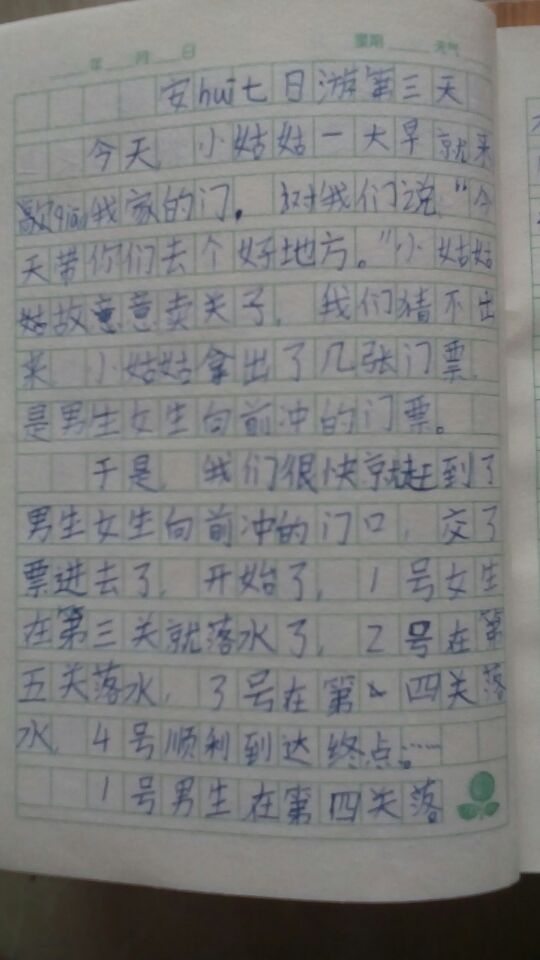 年 月 日 星期 天气
安huī七日游第三天
今天，小姑姑一大早就来
敲qiāo我家的门。对我们说“今
天带你们去个好地方。”小姑姑
故意卖关子，我们猜不出
来，小姑姑拿出了几张门票，
是男生女生向前冲的门票。
于是，我们很快就赶到了
男生女生向前冲的门口，交了
票进去了，开始了，1号女生
在第三关就落水了，2号在第
五关落水，3号在第四关落
水，4号顺利到达终点。……
1号男生在第四关落